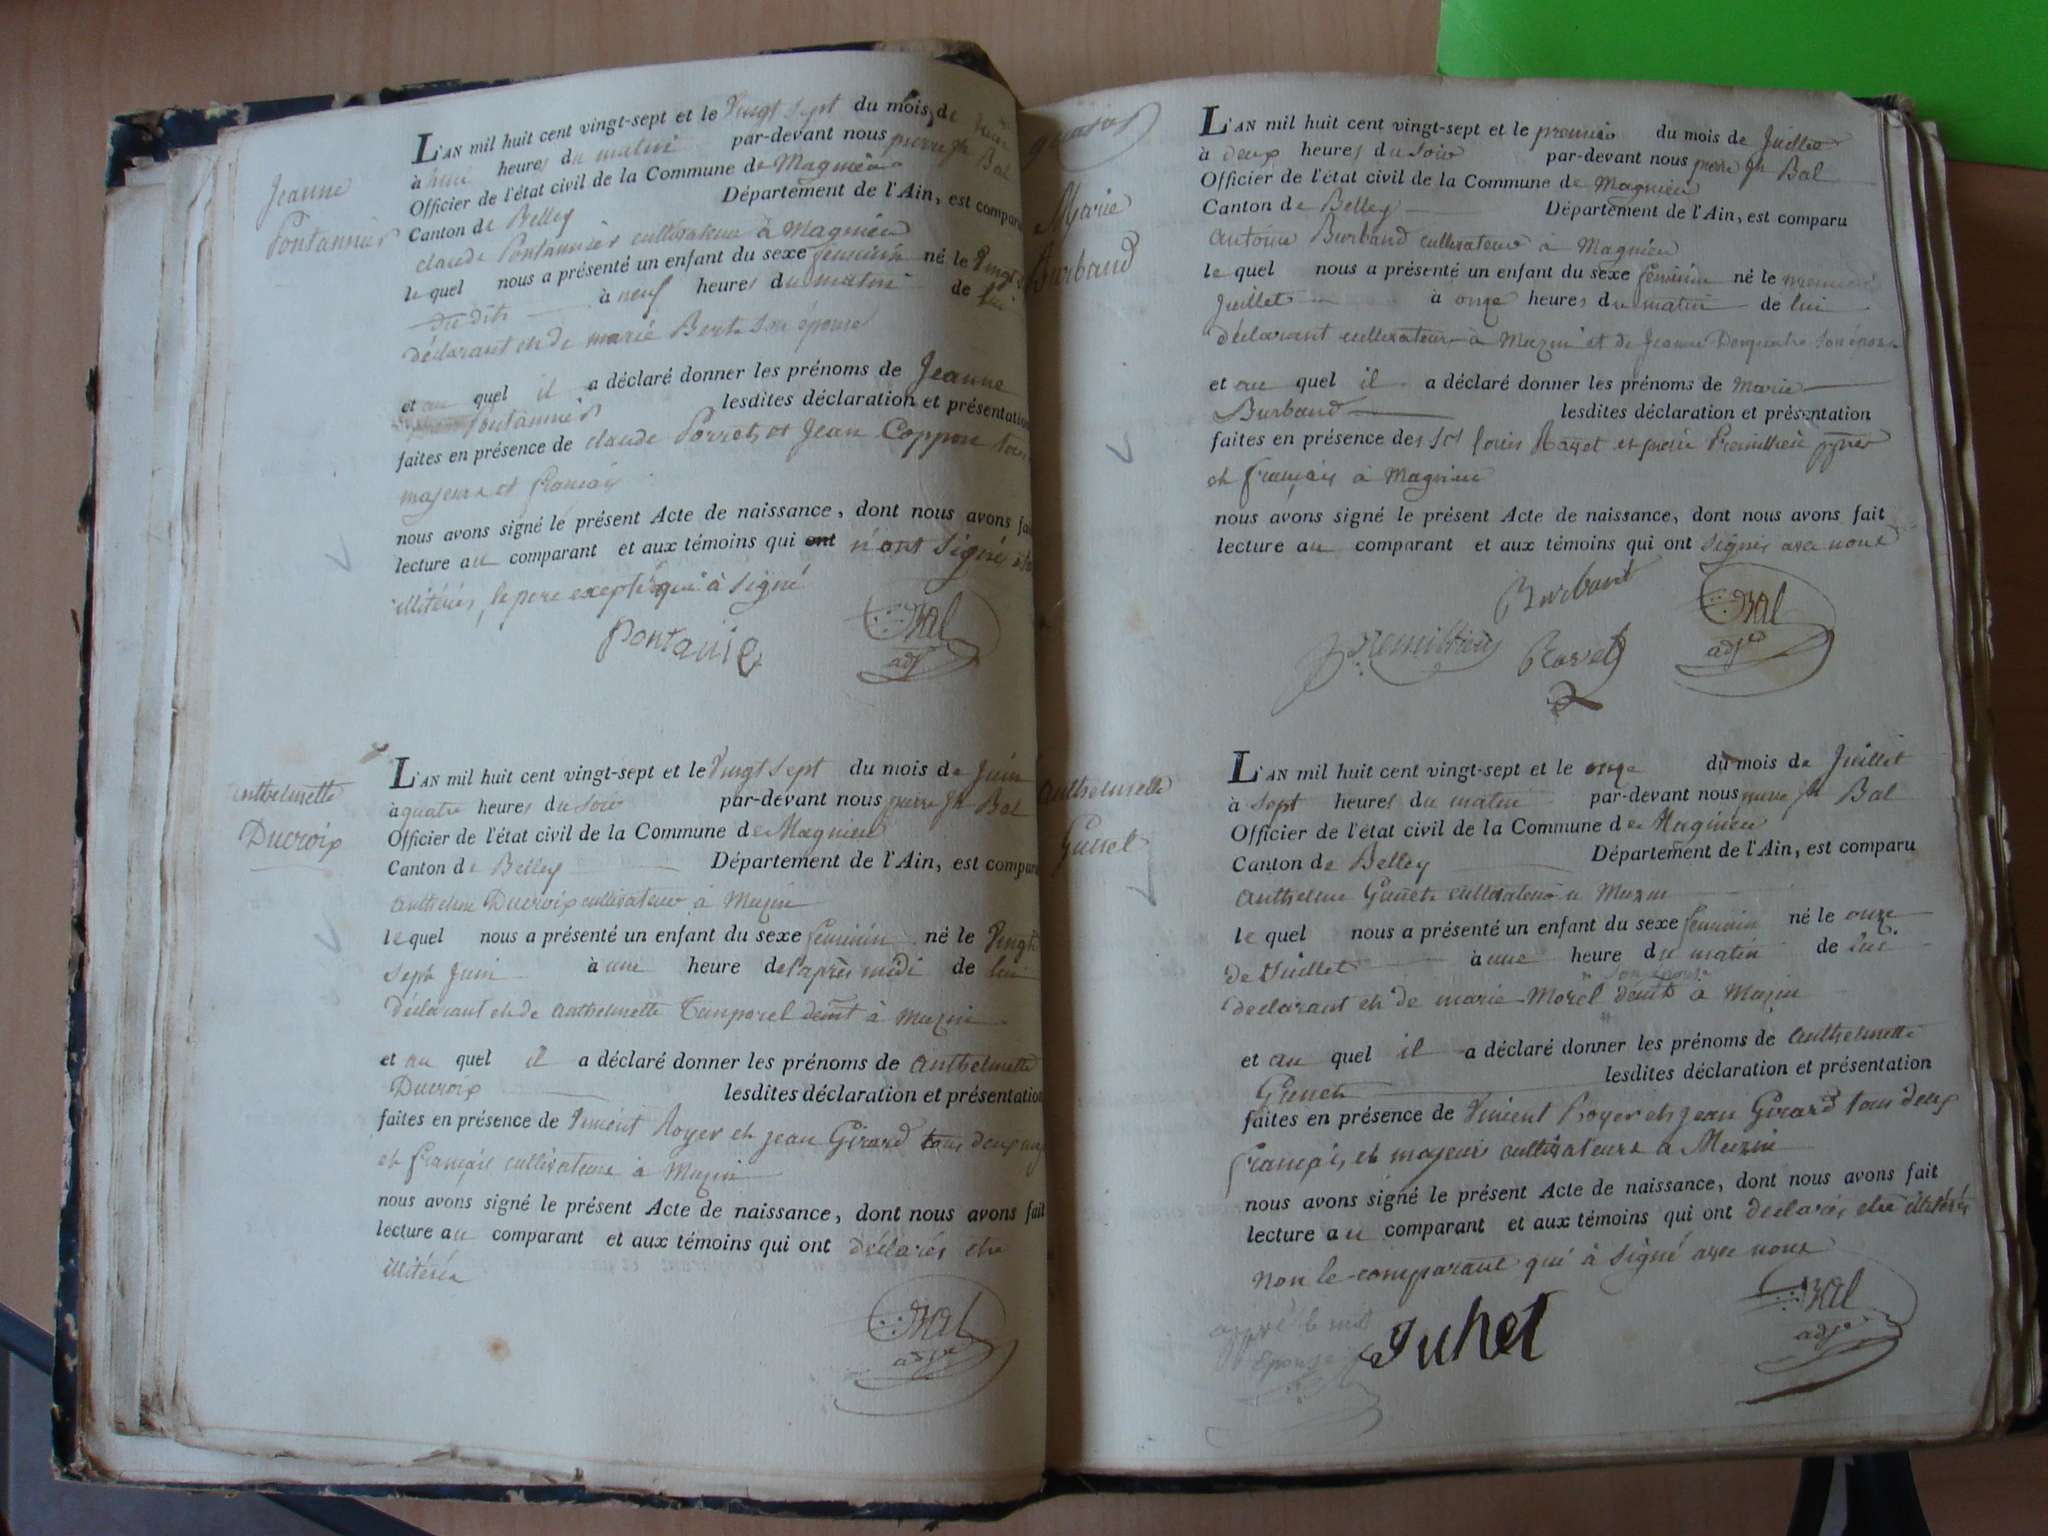 Jeanne
Pontannier
L'AN mil huit cent vingt-sept et le Vingt sept du mois de
à huit heures du matin par-devant nous pierre jh Bal
Officier de l'état civil de la Commune de Magnieu
Canton de Belley Département de l'Ain, est comparu
claude Pontannier cultivateur à Magnieu
le quel nous a présenté un enfant du sexe feminin né le Vingt
du dit à neuf heures du matin de lui
déclarant et de marie Berte son épouse
et au quel il a déclaré donner les prénoms de Jeanne
Pontannier lesdites déclaration et présentation
faites en présence de claude Porret et Jean Coppon tous
majeurs et français
nous avons signé le présent Acte de naissance, dont nous avons fait
lecture au comparant et aux témoins qui ont n'ont signé
illitérés, le pere excepté qui à signé
Pontanie
Bal
adj
anthelmette
Ducroix
L'AN mil huit cent vingt-sept et le Vingt sept du mois de Juin
à quatre heures du soir par-devant nous pierre jh Bal
Officier de l'état civil de la Commune de Magnieu
Canton de Belley Département de l'Ain, est comparu
anthelme Ducroix cultivateur à Muzin
le quel nous a présenté un enfant du sexe feminin né le Vingt
sept Juin à une heure de l'après midi de lui
déclarant et de anthelmette Temporel demt à muzin
et au quel il a déclaré donner les prénoms de anthelmette
Ducroix lesdites déclaration et présentation
faites en présence de Vincent Royer et jean Girard tous deux
et français cultivateurs à Muzin
nous avons signé le présent Acte de naissance, dont nous avons fait
lecture au comparant et aux témoins qui ont déclarés etre
illitérés
Bal
adj
Marie
Burband
L'AN mil huit cent vingt-sept et le premier du mois de Juillet
à deux heures du soir par-devant nous pierre jh Bal
Officier de l'état civil de la Commune de Magnieu
Canton de Belley Département de l'Ain, est comparu
antoine Burband cultivateur à Magnieu
le quel nous a présenté un enfant du sexe feminin né le premier
Juillet à onze heures du matin de lui
déclarant cultivateur à Muzin et de Jeanne son épouse
et au quel il a déclaré donner les prénoms de Marie
Burband lesdites déclaration et présentation
faites en présence des Srs louis Ravet et pierre Premillieu
et français à Magnieu
nous avons signé le présent Acte de naissance, dont nous avons fait
lecture au comparant et aux témoins qui ont signés avec nous
Burbant
Premillieu Ravet
Bal
adj
anthelmette
Guinet
L'AN mil huit cent vingt-sept et le onze du mois de Juillet
à sept heures du matin par-devant nous pierre jh Bal
Officier de l'état civil de la Commune de Magnieu
Canton de Belley Département de l'Ain, est comparu
anthelme Guinet cultivateur à Muzin
le quel nous a présenté un enfant du sexe feminin né le onze
de Juillet à une heure du matin de lui
son épouse
declarant et de marie Morel demt à Muzin
et au quel il a déclaré donner les prénoms de anthelmette
Guinet lesdites déclaration et présentation
faites en présence de Vincent Royer et jean Girard tous deux
français et majeurs cultivateurs à Muzin
nous avons signé le présent Acte de naissance, dont nous avons fait
lecture au comparant et aux témoins qui ont declarés etre illitérés
non le comparant qui à signé avec nous
Juhet
Bal
adj
épouse